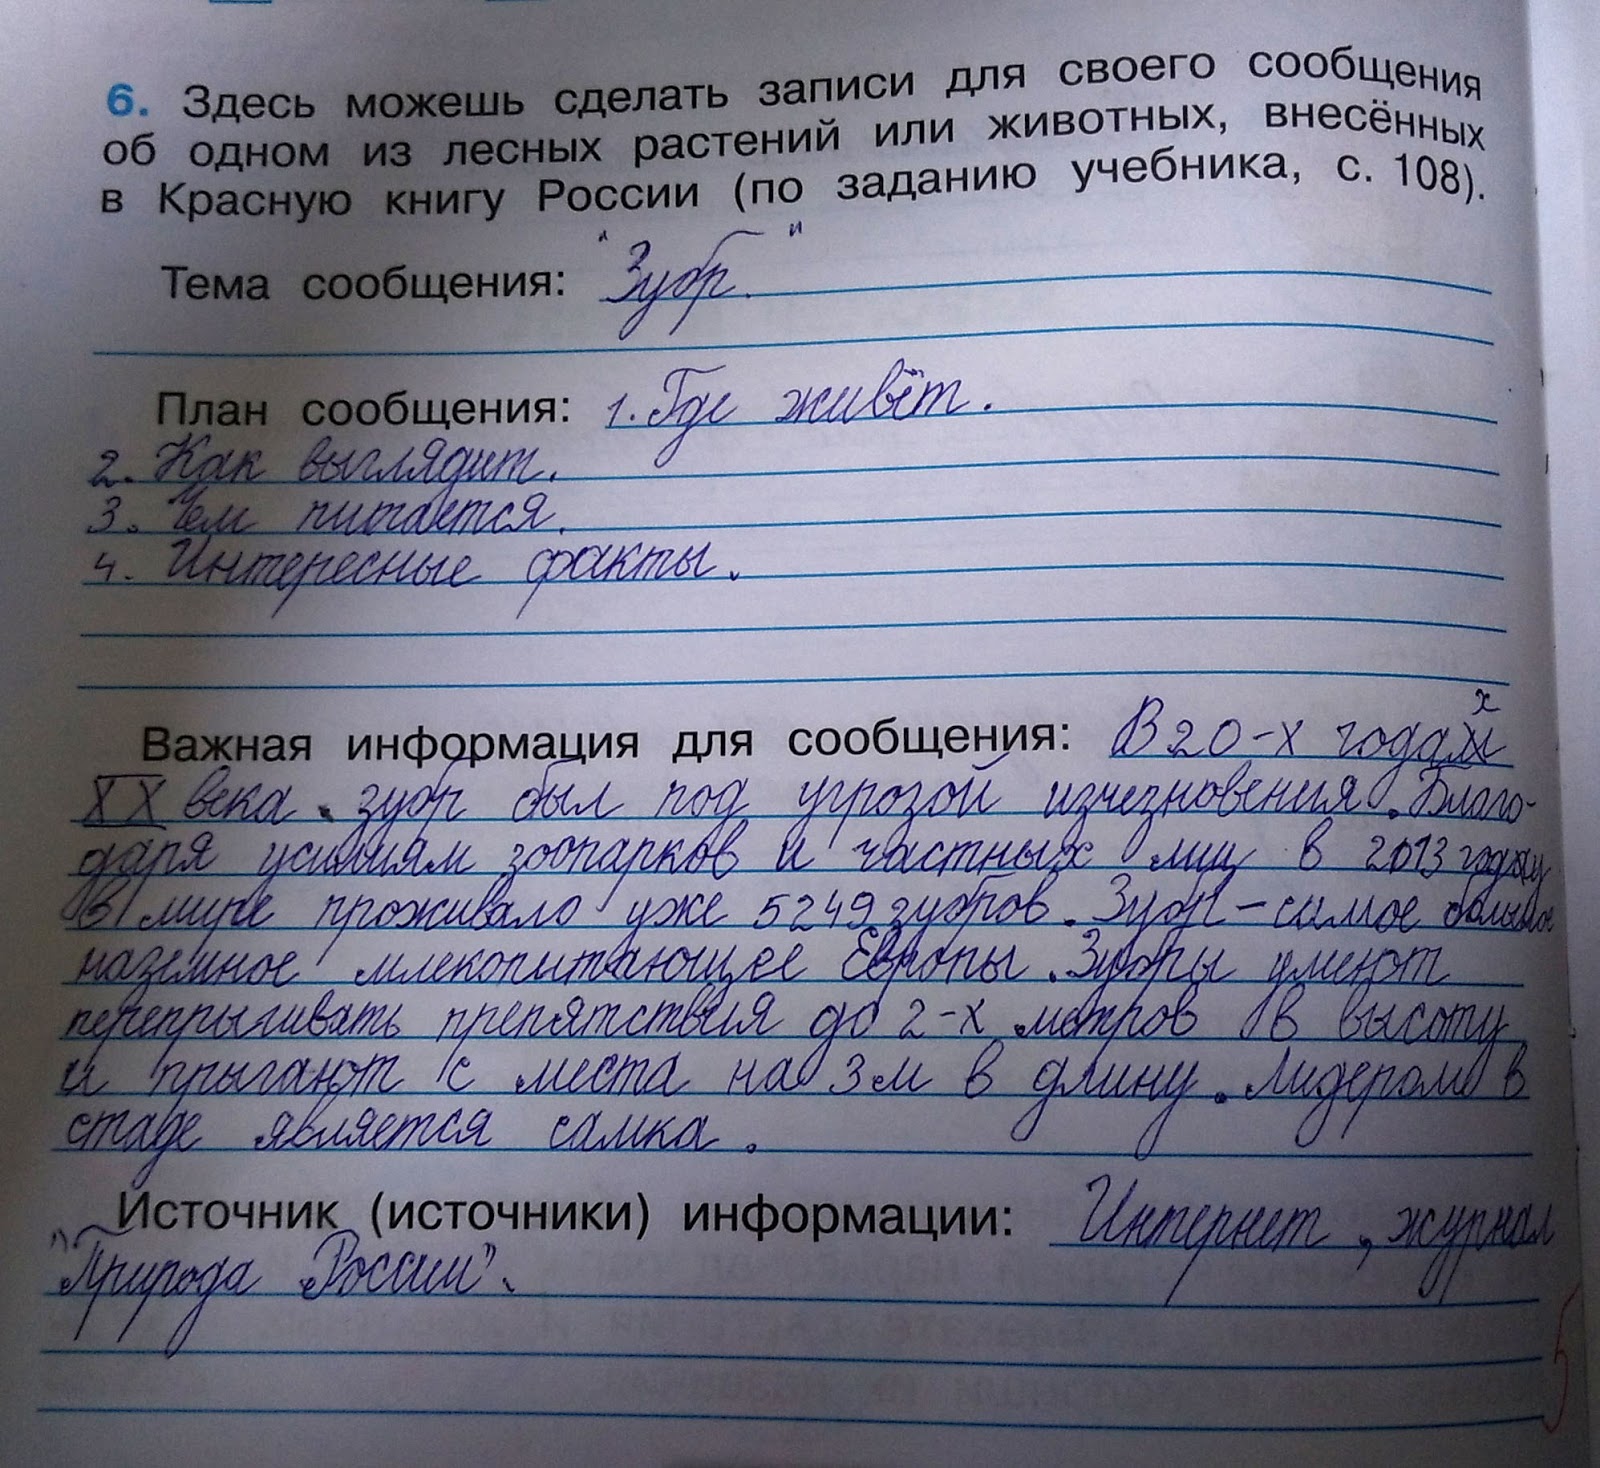 6. Здесь можешь сделать записи для своего сообщения
об одном из лесных растений или животных, внесённых
в Красную книгу России (по заданию учебника, с. 108).
Тема сообщения: "Зубр."
План сообщения: 1. Где живёт.
2. Как выглядит.
3. Чем питается.
4. Интересные факты.
Важная информация для сообщения: В 20-х годах
XX века зубр был под угрозой изчезновения. Благо-
даря усилиям зоопарков и частных лиц в 2013 году
в мире проживало уже 5249 зубров. Зубр – самое большое
наземное млекопитающее Европы. Зубры умеют
перепрыгивать препятствия до 2-х метров в высоту
и прыгают с места на 3 м в длину. Лидером в
стаде является самка.
Источник (источники) информации: Интернет, журнал
"Природа России".
5